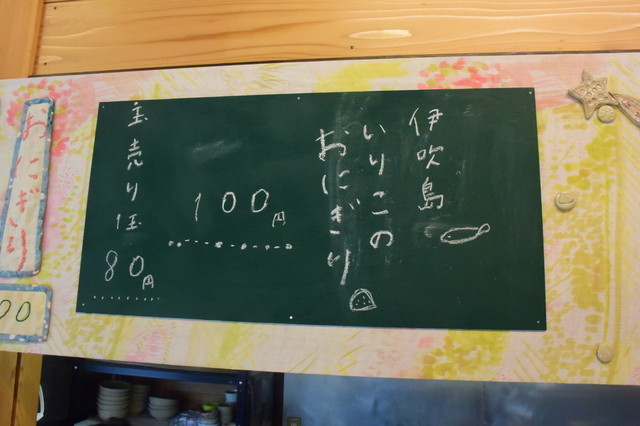 伊吹島
いりこの
おにぎり
100円
玉売り(玉
80円
おにぎり
00